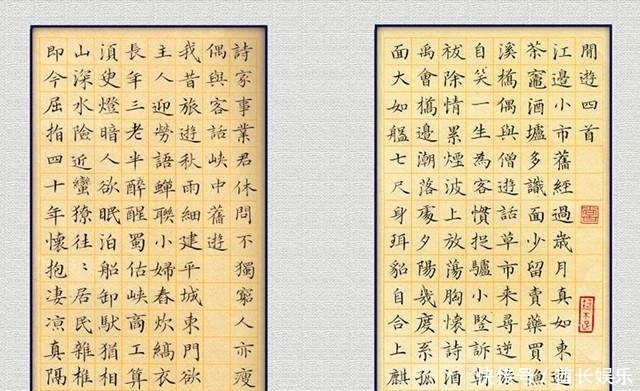 閒遊四首
江邊小市舊經過歲月真如東
茶竈酒壚多識面少留賣藥買漁
溪橋偶與僧遊話草市來尋逆
自笑一生為客慣捉驢小豎訴
祓除情累煙波上放蕩胸懷詩酒
禹會橋邊潮落處夕陽幾度系孤
面大如七尺身珥貂自合上麒
詩家事業君休問不獨窮人亦瘦
偶與客話峽中舊遊
我昔旅遊秋雨細建平城東門欲
主人迎勞語蟬聯小婦春炊縞衣
長年三老半醉醒蜀估峽商工算
須臾燈暗人欲眠泊船卸馱猶相
山深水險近蠻獠往〻居民雜椎
即今屈指四十年懷抱淒涼真隔
快传号/酋长娱乐